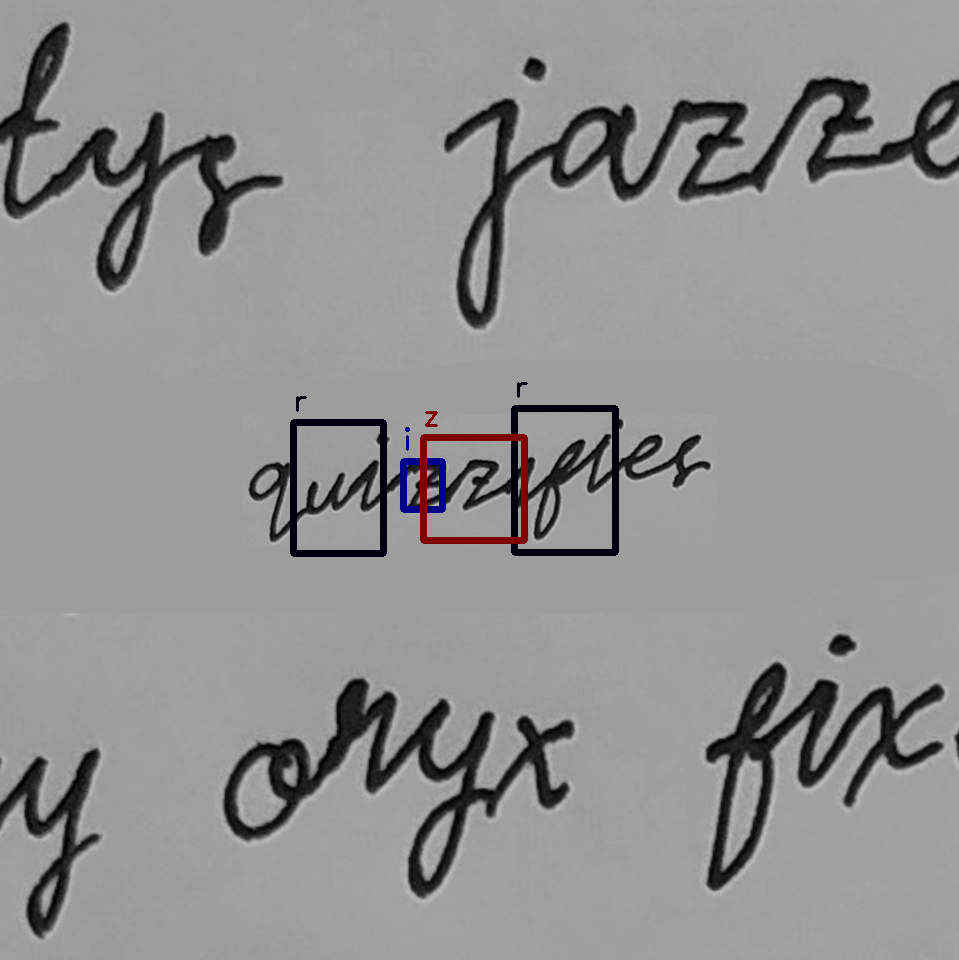 tys jazze
r i z r
quizzifies
y oryx fix